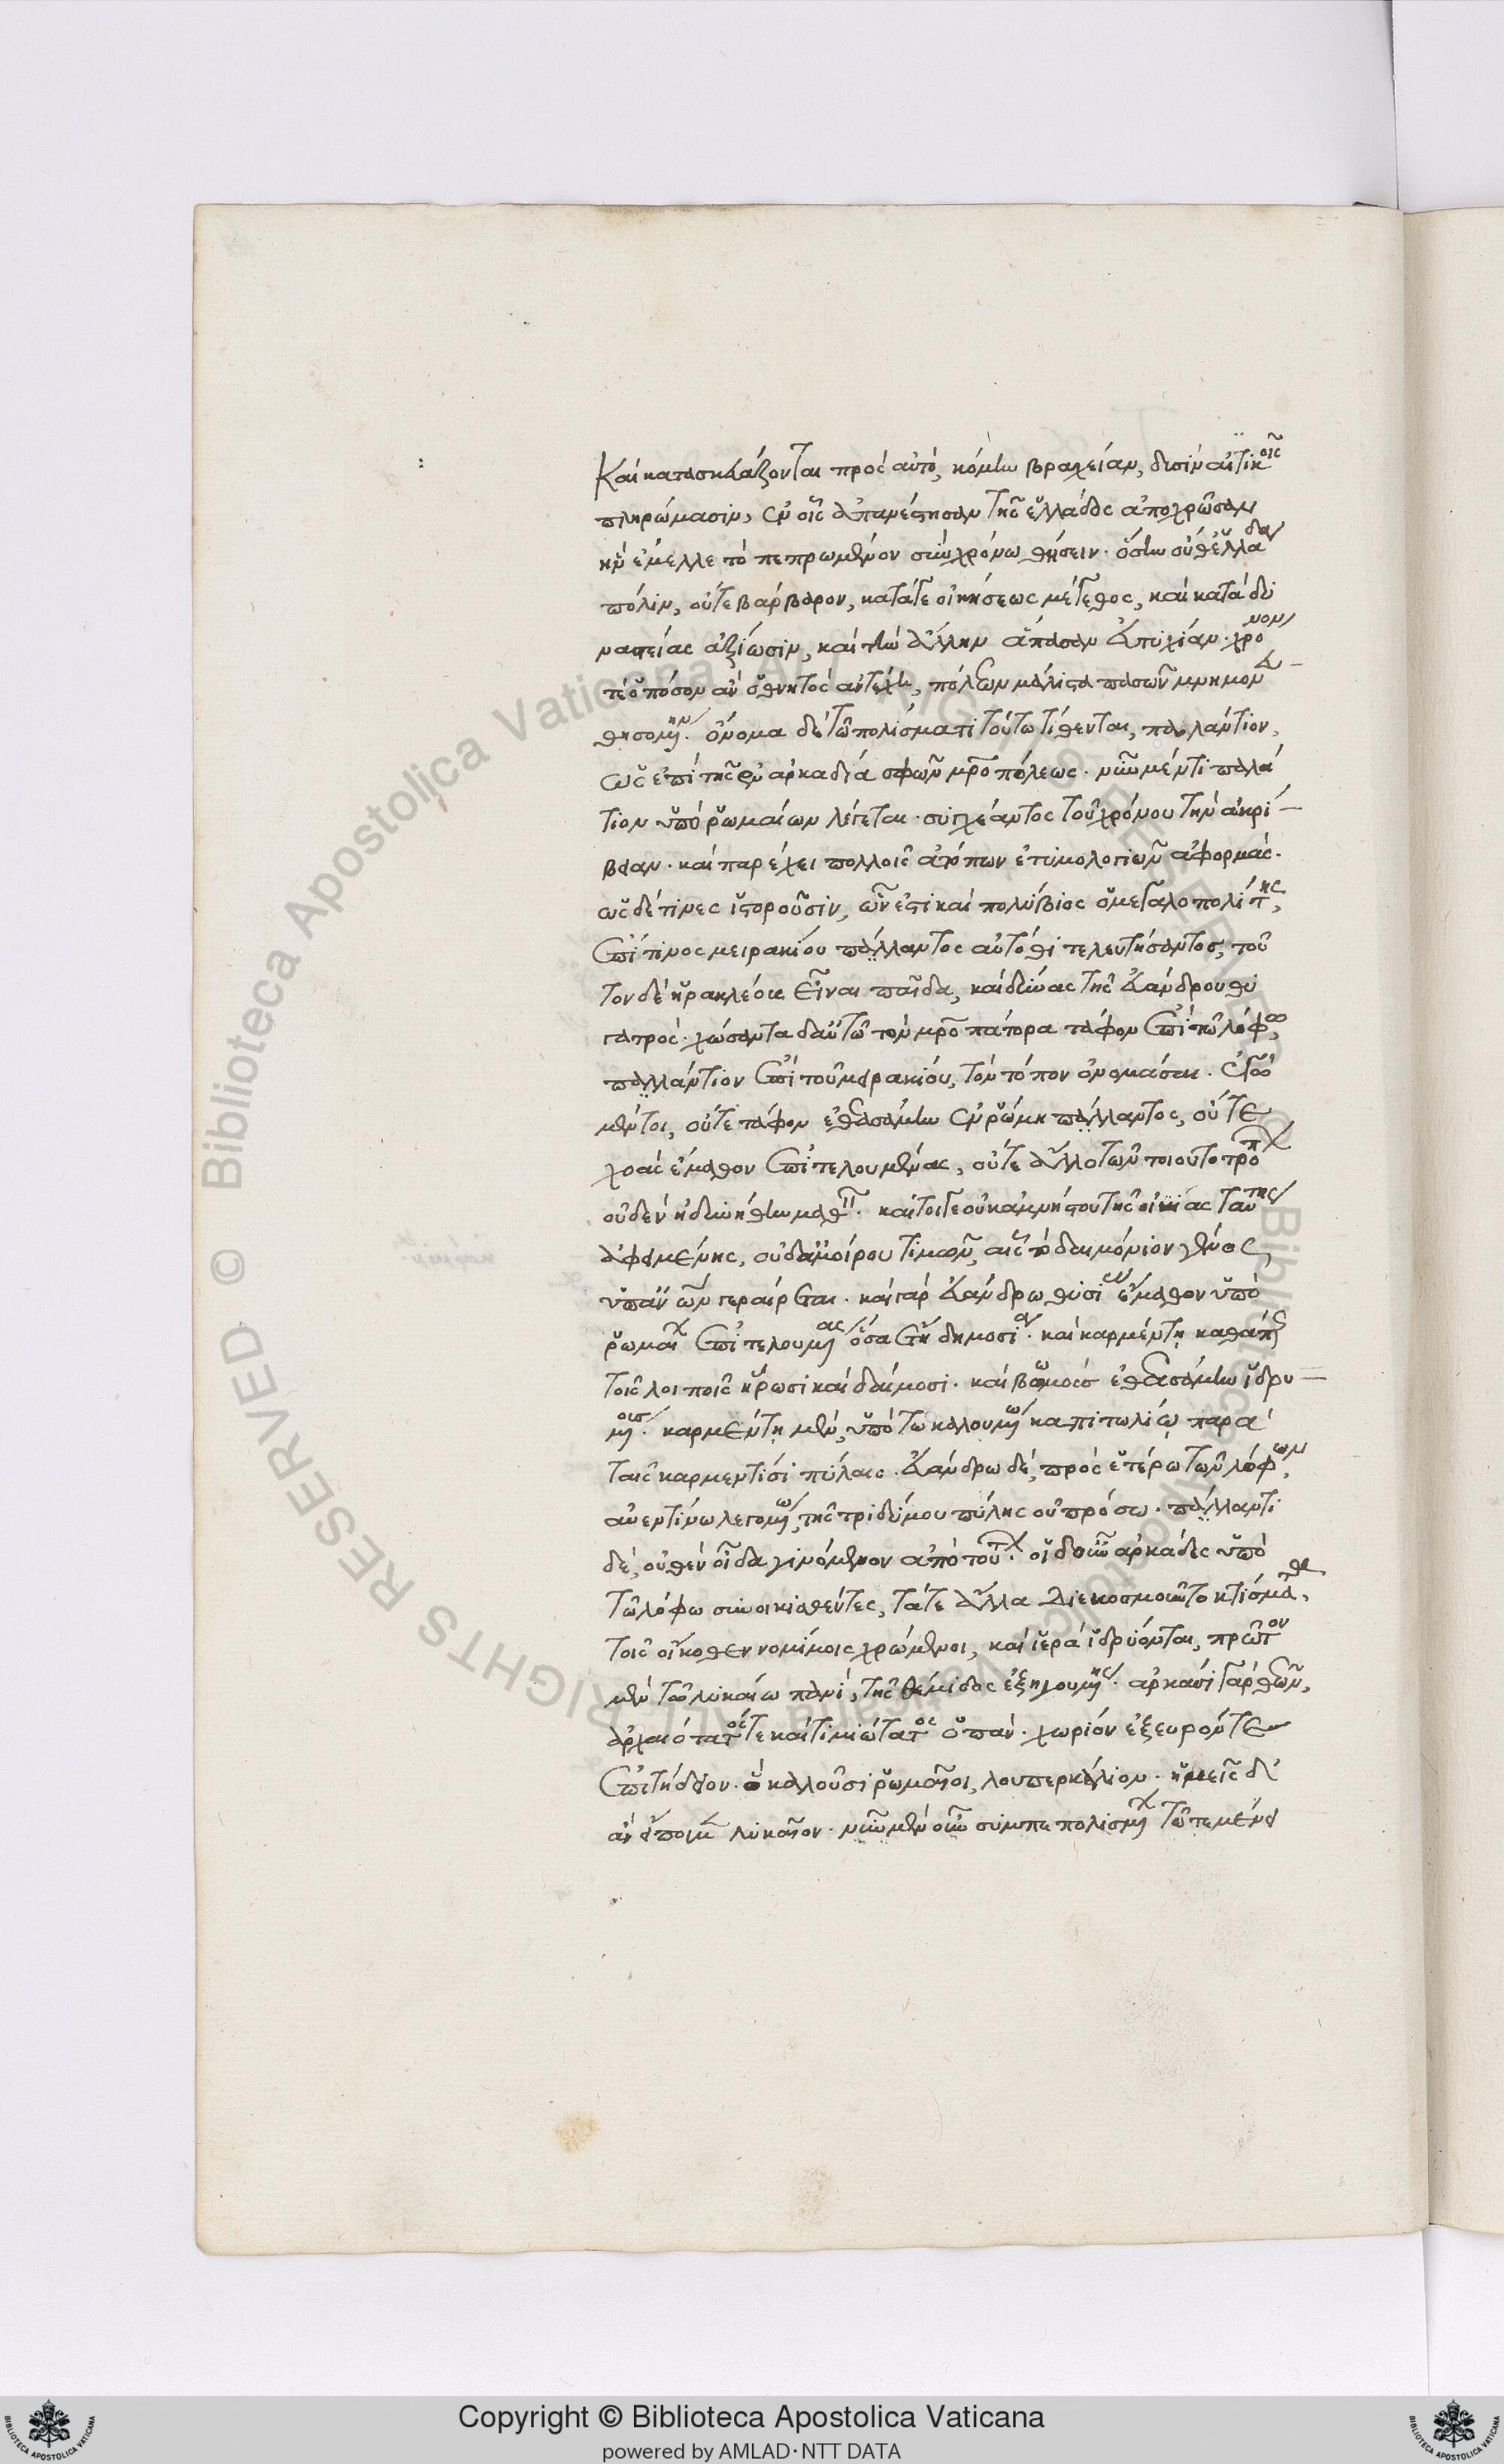 Καὶ κατασκευάζονται πρὸς αὐτὸ, κώμην βραχεῖαν, δυσὶν αὐτικοῖς
πληρώμασιν, ἐν οἷς ἀπανέστησαν τῆς ἑλλάδος ἀποχρῶσαν
ἣν ἔμελλε τὸ πεπρωμένον σὺν χρόνω θήσειν. ὅσην οὔθ' ἑλλάδα
πόλιν, οὔτε βάρβαρον, κατά τε οἰκήσεως μέγεθος, καὶ κατὰ δυ
ναστείας ἀξίωσιν, καὶ τὴν ἄλλην ἅπασαν εὐτυχίαν. χρόνον
τὲ ὁπόσον ἂν ὁ θνητὸς ἀντέχη, πόλεων μάλιστα πασῶν μνημονευ
θησομένην. ὄνομα δὲ τῶ πολίσματι τούτω τίθενται, παλλάντιον,
ὡς ἐπὶ τῆς ἐν ἀρκαδία σφῶν μητροπόλεως. νῦν μέντι παλά
τιον ὑπὸ ῥωμαίων λέγεται. συγχέαντος τοῦ χρόνου τὴν ἀκρί
βειαν. καὶ παρέχει πολλοῖς ἀτόπων ἐτυμολογιῶν ἀφορμάς.
ὡς δέ τινες ἱστοροῦσιν, ὧν ἐστὶ καὶ πολύβιος ὁ μεγαλοπολίτης,
ἐπί τινος μειρακίου πάλλαντος αὐτόθι τελευτήσαντος, τοῦ
τον δὲ ἡρακλέους εἶναι παῖδα, καὶ δύνας τῆς εὐάνδρου θυ
γατρός. χώσαντα δ' αὐτῶ τὸν μητροπάτορα τάφον ἐπὶ τῶ λόφω,
παλλάντιον ἐπὶ τοῦ μειρακίου, τὸν τόπον ὀνομάσαι. ἐγὼ
μέντοι, οὔτε τάφον ἐθεασάμην ἐν ῥώμη πάλλαντος, οὔτε
χοὰς ἔμαθον ἐπιτελουμένας, οὔτε ἄλλο τῶν τοιουτοτρόπων
οὐδὲν ἠδυνήθην μαθεῖν. καίτοι γε οὐκ ἀμνήστου τῆς οἰκίας ταύτης
ἀφειμένης, οὐδ' ἀμοίρου τιμῶν, αἷς τὸ δαιμόνιον γένος,
ὑπ' ἀνθρώπων γεραίρεται. καὶ γὰρ εὐάνδρω θυσίας ἔμαθον ὑπὸ
ῥωμαίων ἐπιτελουμένας ὅσα ἔτη δημοσία. καὶ καρμέντη καθάπερ
τοῖς λοιποῖς ἥρωσι καὶ δαίμοσι. καὶ βωμοὺς ἐθεασάμην ἱδρυ
μένους. καρμέντη μὲν, ὑπὸ τῶ καλουμένω καπιτωλίω παρὰ
ταῖς καρμεντίσι πύλαις. εὐάνδρω δέ, πρὸς ἑτέρω τῶν λόφων,
αὐεντίνω λεγομένω, τῆς τριδύμου πύλης οὐ πρόσω. πάλλαντι
δὲ, οὐθὲν οἶδα γινόμενον ἀπὸ τούτων. οἱ δ' οὖν ἀρκάδες ὑπὸ
τῶ λόφω συνοικισθέντες, τά τε ἄλλα διεκοσμοῦντο κτίσματα,
τοῖς οἴκοθεν νομίμοις χρώμενοι, καὶ ἱερὰ ἱδρύονται, πρῶτον
μὲν τῶ λυκαίω πανί, τῆς θέμιδος ἐξηγουμένης. ἀρκάσι γὰρ θεῶν,
ἀρχαιότατός τε καὶ τιμιώτατος ὁ πάν. χωρίον ἐξευρόντες
ἐπιτήδειον. ὃ καλοῦσι ῥωμαῖοι, λουπερκάλιον. ἡμεῖς δὲ
ἂν εἴποιμεν λύκαιον. νῦν μὲν οὖν συμπεπολισμένων τῶ τεμένει